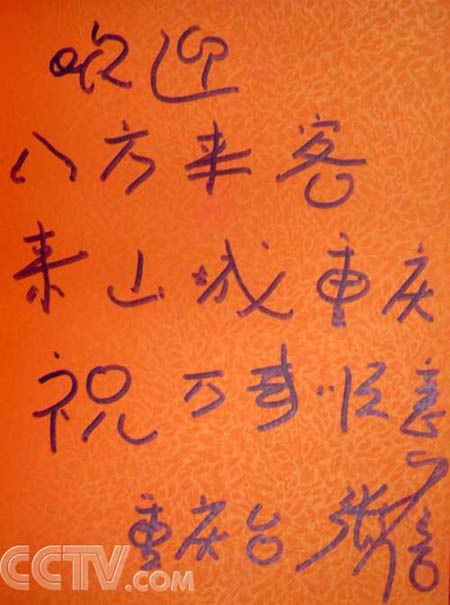 欢迎
八方来客
来山城重庆
祝万事顺意
重庆台
CCTV.com